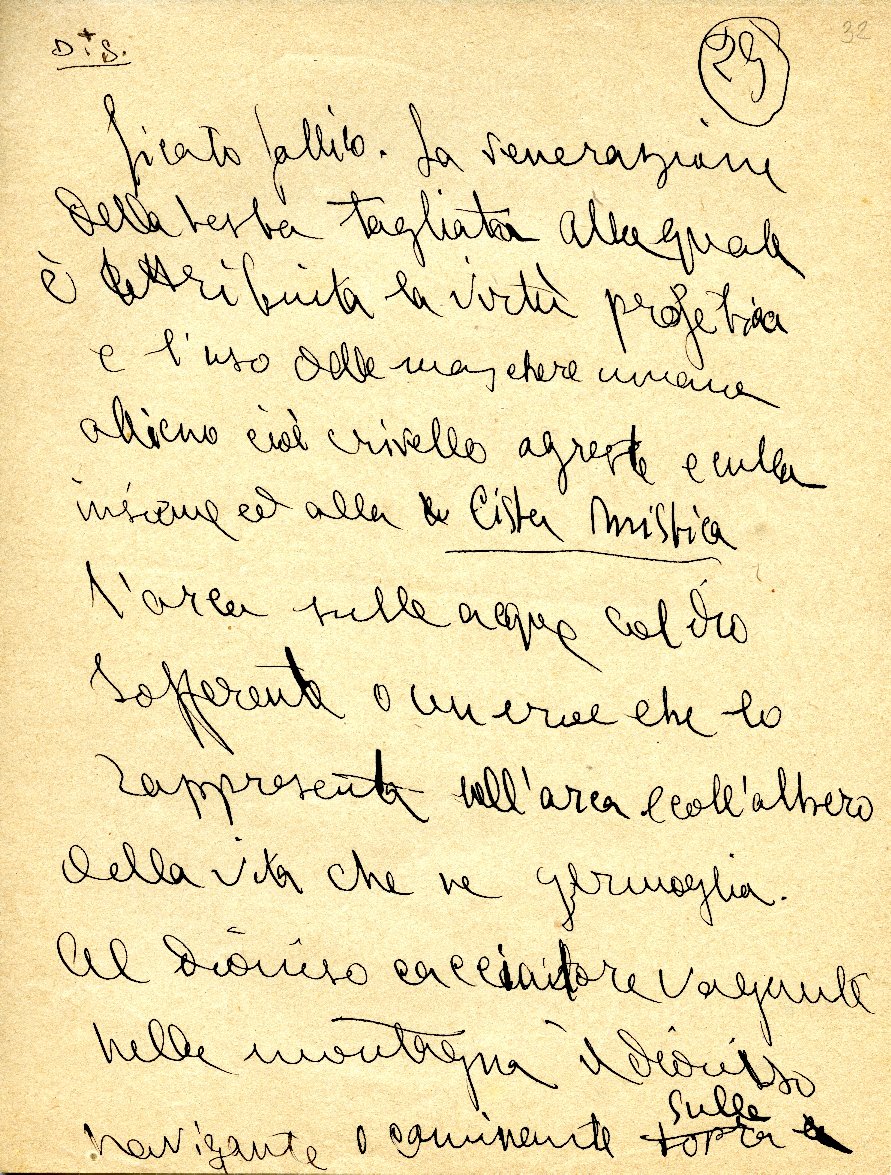 D+S.
29
32
ficato fallico. La venerazione
della testa tagliata alla quale
è attribuita la virtù profetica
e l'uso delle maschere umane
al cioè crivello agreste e culla
insieme ed alla Cista Mistica
l'arca sulle acque col dio
sofferente o un eroe che lo
rappresenta coll'arca e coll'albero
della vita che ne germoglia.
Al Dioniso cacciatore vagante
nelle montagna il Dioniso
sulle
navigante o camminante sopra